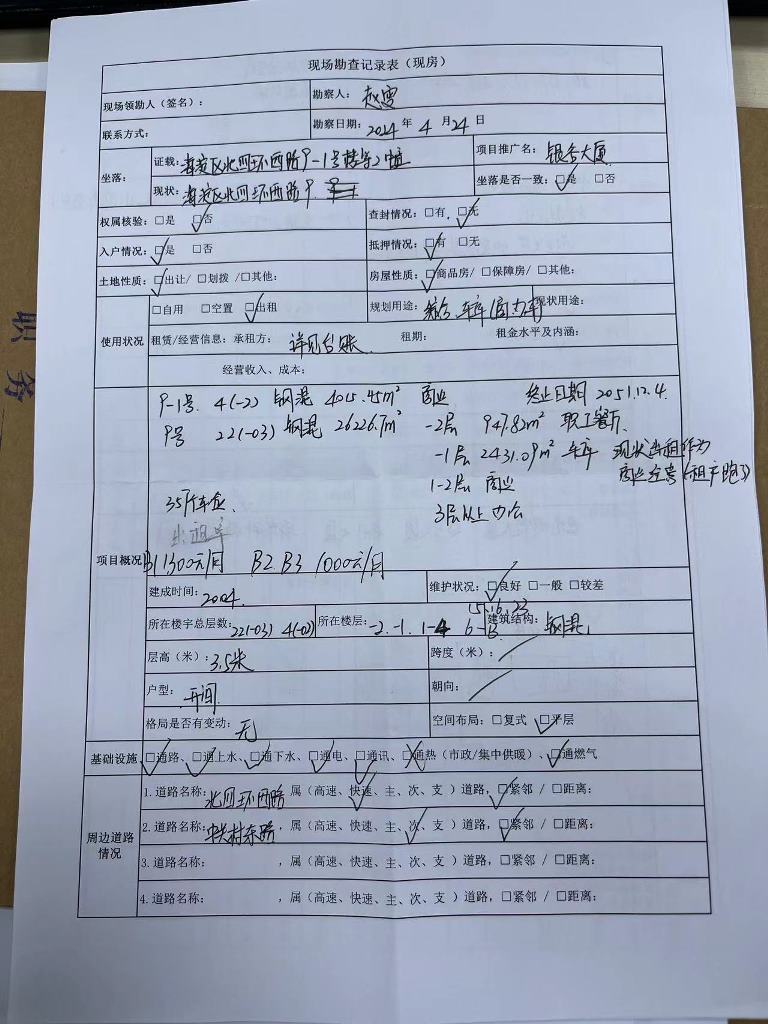 现场勘查记录表（现房）
现场领勘人（签名）：
勘察人：
联系方式：
勘察日期：2024 年 4 月 24 日
坐落：
证载：海淀区北四环西路9-1号
项目推广名：银谷大厦
现状：海淀区北四环西路9
坐落是否一致：☑是 □否
权属核验：□是 ☑否
查封情况：□有、☑无
入户情况：☑是 □否
抵押情况：☑有 □无
土地性质：☑出让/ □划拨 /□其他：
房屋性质：☑商品房/ □保障房/ □其他：
使用状况
□自用 □空置 ☑出租
规划用途：综合、车库
现状用途：
租赁/经营信息：承租方：详见台账 租期： 租金水平及内涵：
经营收入、成本：
项目概况
9-1号 4(-2) 钢混 4015.45m² 商业 终止日期 2051.12.4.
9号 22(-03) 钢混 26226.7m² -2层 947.82m² 职工餐厅
-1层 2431.09m² 车库 现状出租作为
商业经营(租户跑了)
1-2层 商业
3层以上办公
出租率
B1 1300元/月 B2 B3 1000元/月
建成时间：2004.
维护状况：☑良好 □一般 □较差
所在楼宇总层数：22(-03) 4(-02)
所在楼层：-2.-1. 1-4
建筑结构：钢混
层高（米）：3.5米
跨度（米）：
户型：开间
朝向：
格局是否有变动：无
空间布局：□复式 ☑平层
基础设施
☑通路、☑通上水、☑通下水、☑通电、☑通讯、☒通热（市政/集中供暖）、☑通燃气
周边道路情况
1.道路名称：北四环西路，属（高速、快速、主、次、支 ）道路，☑紧邻 / □距离：
2.道路名称：中关村东路，属（高速、快速、主、次、支 ）道路，☑紧邻 / □距离：
3.道路名称： ，属（高速、快速、主、次、支 ）道路，□紧邻 / □距离：
4.道路名称： ，属（高速、快速、主、次、支 ）道路，□紧邻 / □距离：
职务